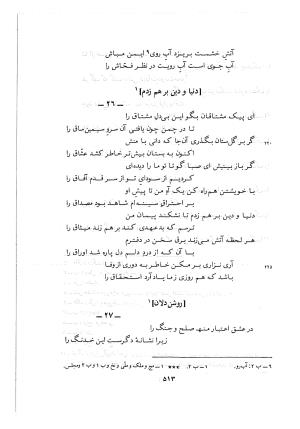 آتش خشمت بریزد آب روی۹ ایمن مباش
آب جوی است آب رویت در نظر فحّاش را
[دنیا و دین بر هم زدم]۱
ــ ۲۶ ــ
ای پیک مشتاقان بگو این بی‌دل مشتاق را
تا در چمن چون یافتی آن سرو سیمین‌ساق را
گر بر گلستان بگذری آن‌جا که دانی با منش
۲۲۰
اکنون به بستان بیش‌تر خاطر کشد عشّاق را
گر باز بینیش ای صبا گو تا تو ما دیده‌ای
کردیم از سودای تو از سر قدم آفاق را
با خویشتن همراه کن یک آهِ من تا پیش او
بر احتراق سینه‌ام شاهد بود مصداق را
دنیا و دین بر هم زدم تا نشکند پیمان من
ترسم که بدعهدی کند بر هم زند میثاق را
هر لحظه آتش می‌زند برق سخن در دفترم
با آن که از دردِ دلم دل پاره شد اوراق را
آری نزاری بر مکن خاطر به دوری از وفا
۲۲۵
باشد که هم روزی به یاد آرد استحقاق را
[روشن‌دلان]۱
ــ ۲۷ ــ
در عشق اعتبار منه صلح و جنگ را
زیرا نشانهٔ دگرست این خدنگ را
۹ ــ ب ۲: آب‌رو. ۱ ــ ب ۲. *** ۱ ــ مج و ملک و ملّی و نخ و ب ۱ و ب ۲ و مجلس.
۵۱۳